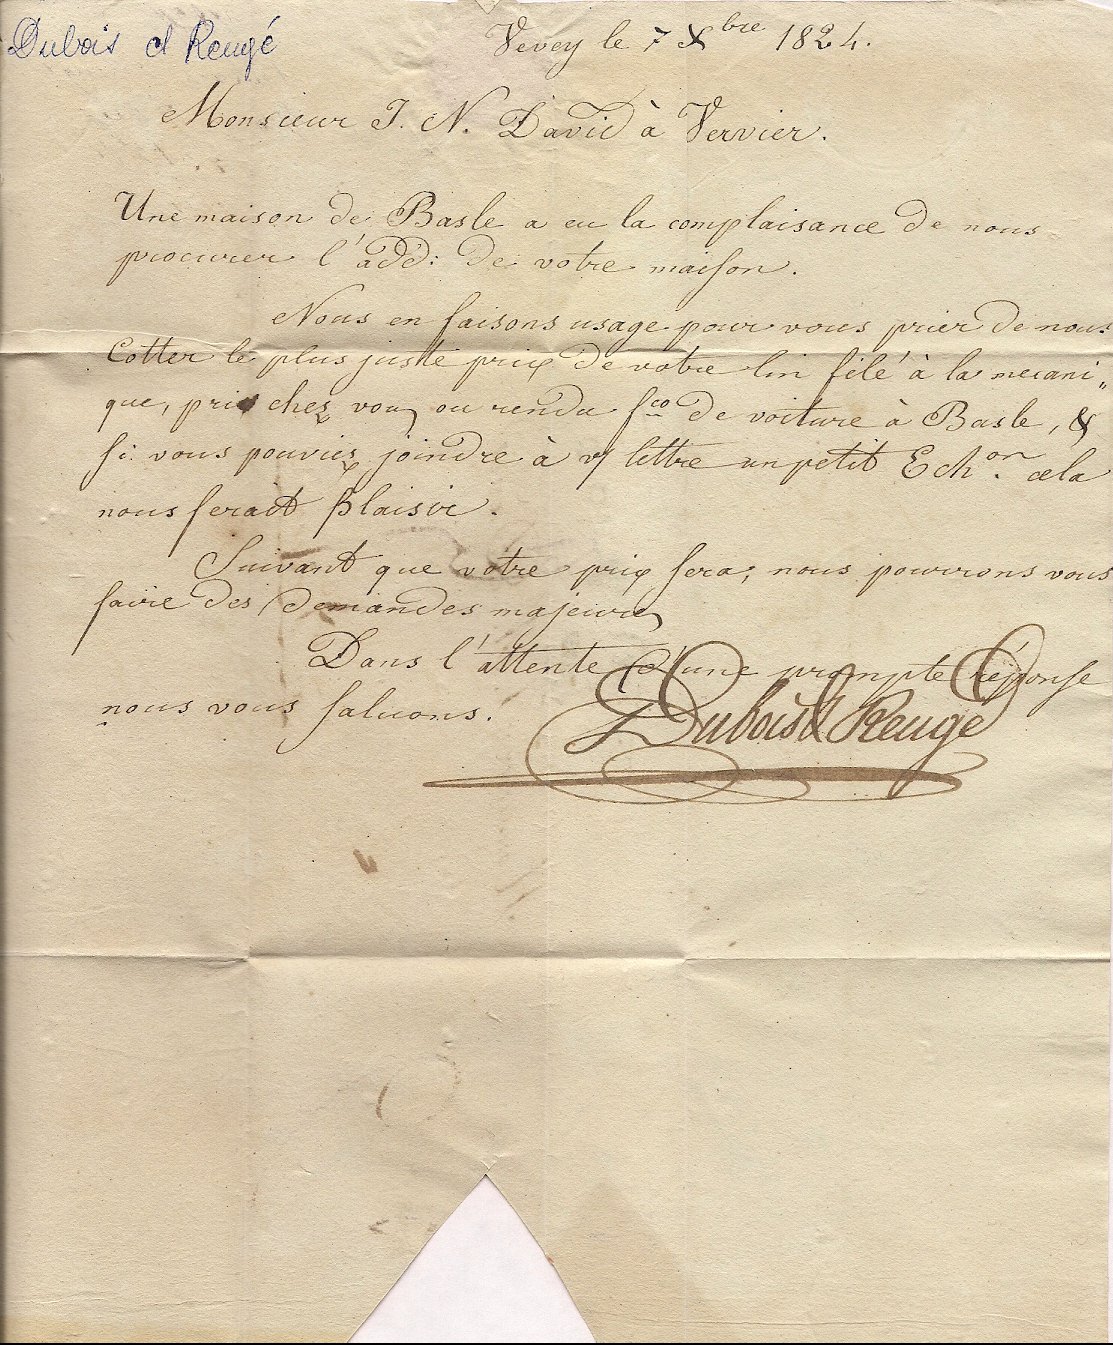 Dubois et Reugé
Vevey le 7 Xbre 1824.
Monsieur J. N. David à Vervier.
Une maison de Basle a eu la complaisance de nous
procurer l'add: de votre maison.
Nous en faisons usage pour vous prier de nous
Cotter le plus juste prix de votre lin filé à la mecani„
que, pris chez vous ou rendu fco de voiture à Basle, &
si vous pouviez joindre à v/ lettre un petit Echon. cela
nous ferait plaisir.
Suivant que votre prix sera, nous pourrons vous
faire des demandes majeures
Dans l'attente d'une prompte réponse
nous vous saluons.
Dubois & Reugé